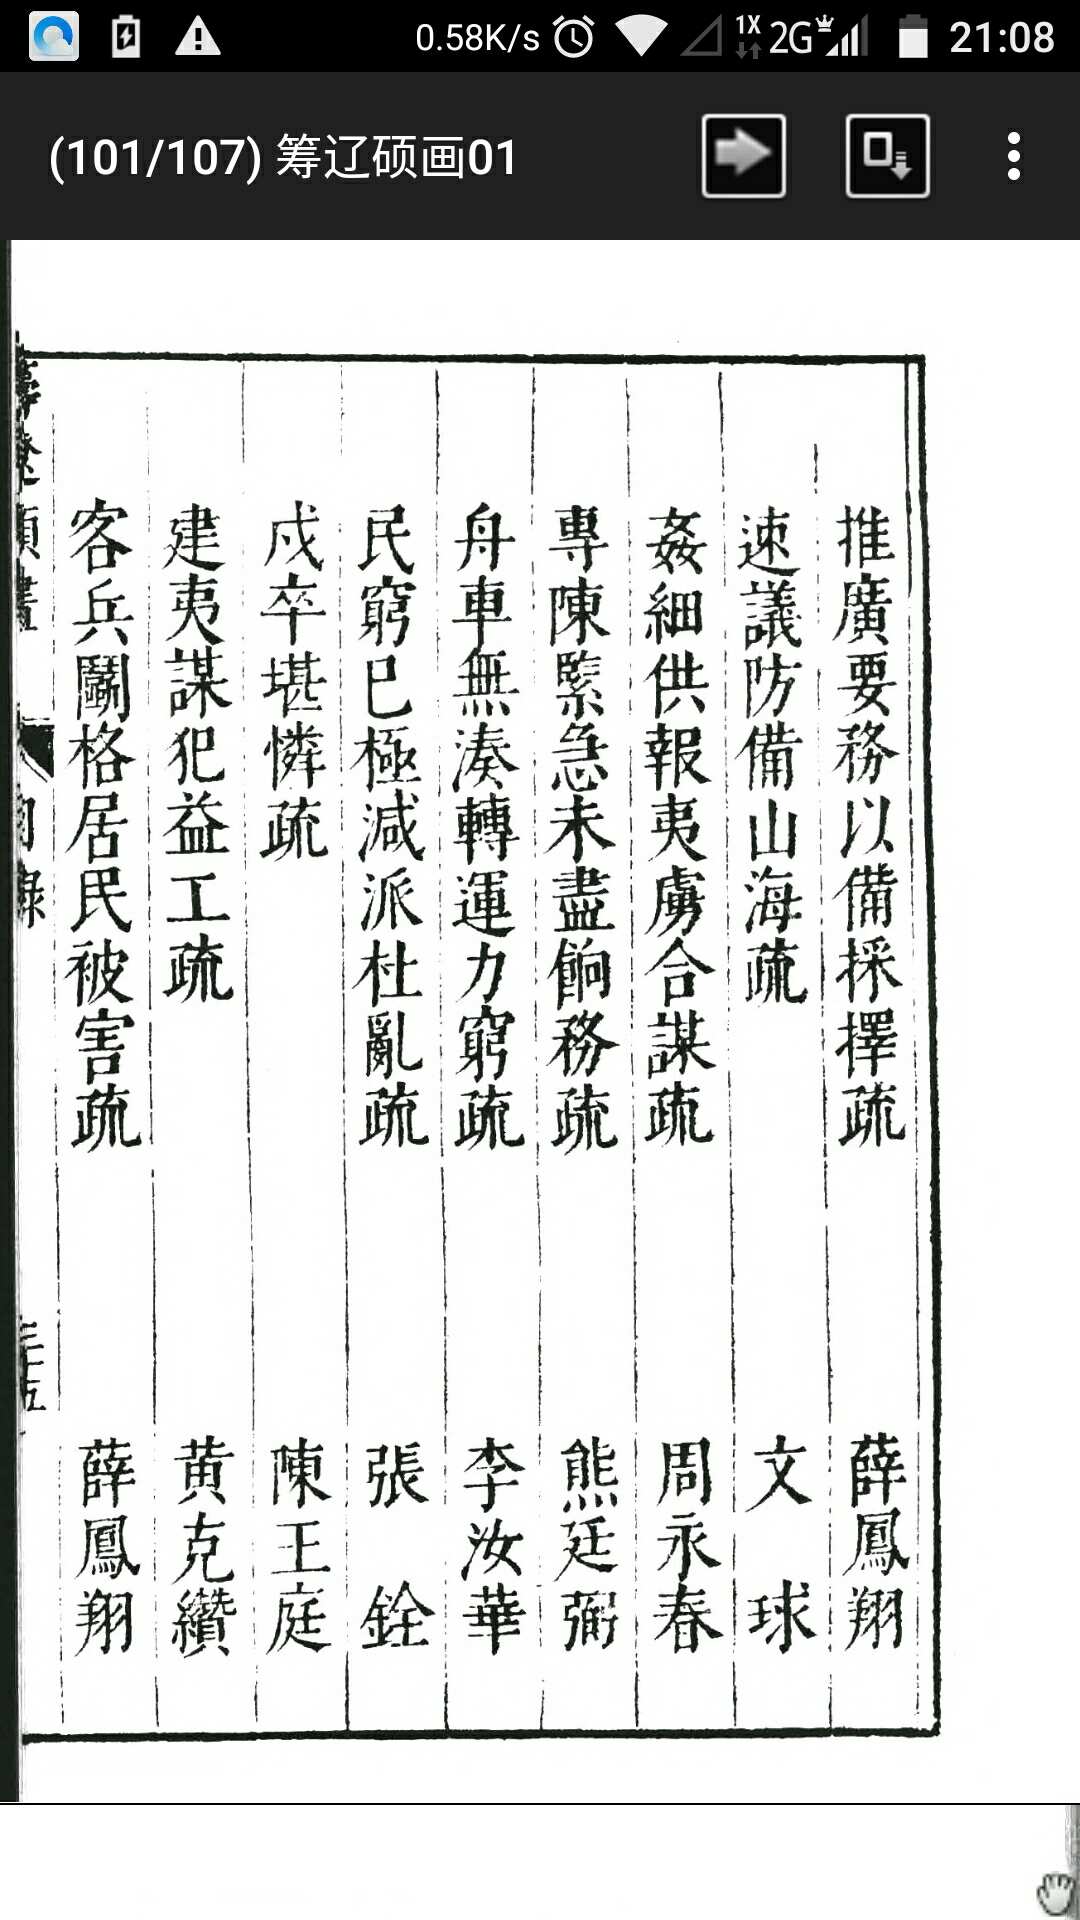 0.58K/s 1X 2G 21:08
(101/107) 筹辽硕画01
推廣要務以備採擇疏 薛鳳翔
速議防備山海疏 文球
姦細供報夷虜合謀疏 周永春
專陳緊急未盡餉務疏 熊廷弼
舟車無湊轉運力窮疏 李汝華
民窮巳極減派杜亂疏 張銓
戍卒堪憐疏 陳王庭
建夷謀犯益工疏 黃克纘
客兵鬬格居民被害疏 薛鳳翔